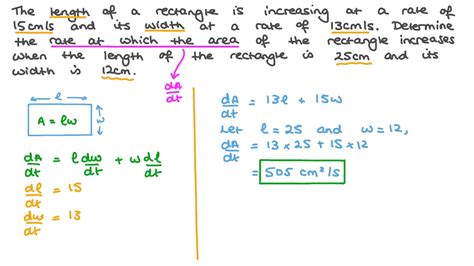 The length of a rectangle is increasing at a rate of
15cm/s and its width at a rate of 13cm/s. Determine
the rate at which the area of the rectangle increases
when the length of the rectangle is 25cm and its
width is 12cm.
dA/dt
l
A = lw
w
dA/dt = l dw/dt + w dl/dt
dl/dt = 15
dw/dt = 13
dA/dt = 13l + 15w
Let l = 25 and w = 12,
dA/dt = 13 × 25 + 15 × 12
= 505 cm²/s